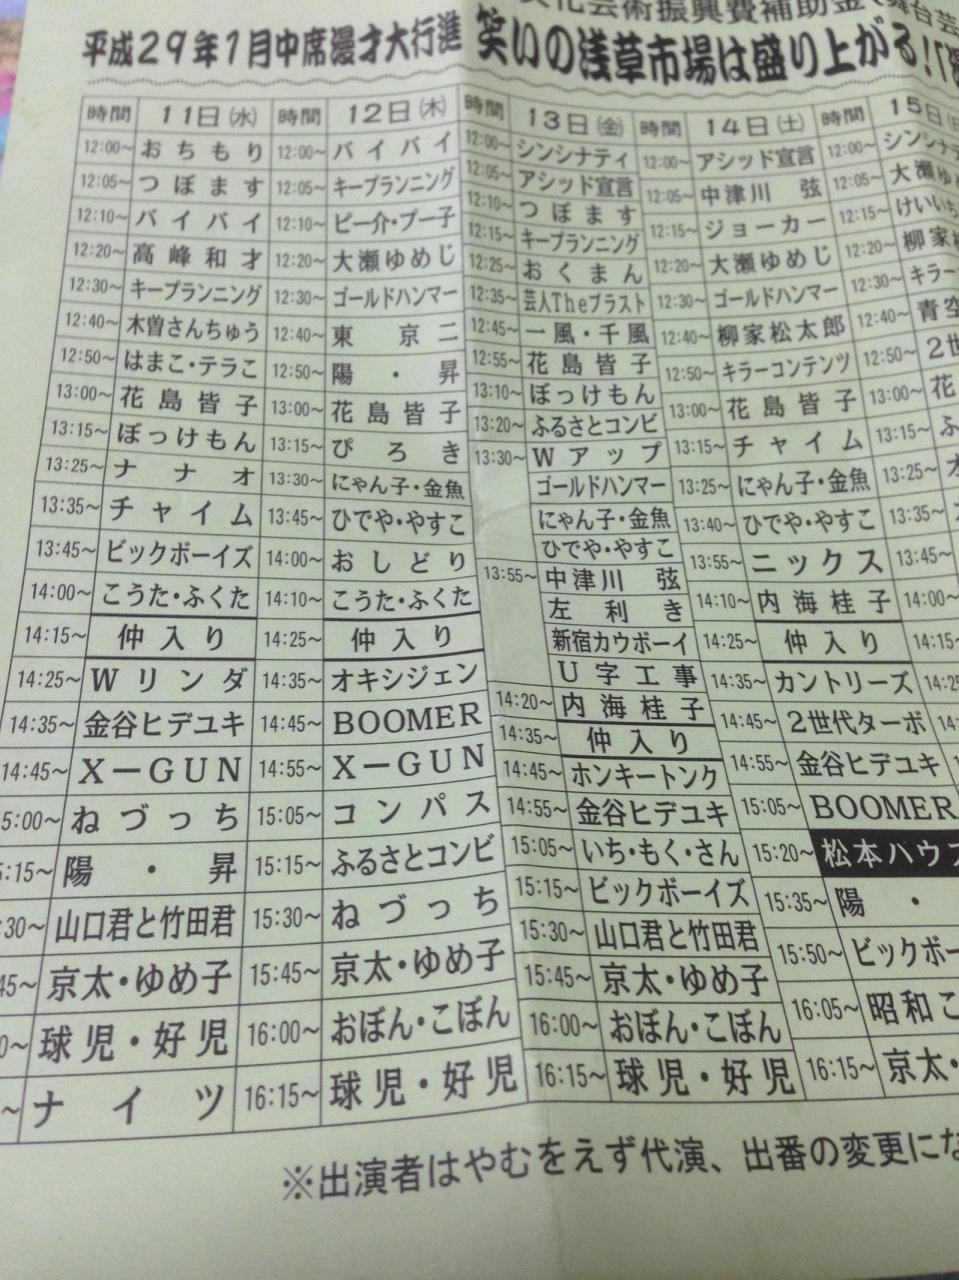 化芸術振興費補助金
平成29年1月中席漫才大行進 笑いの浅草市場は盛り上がる！
時間 11日(水) 時間 12日(木) 時間 13日(金) 時間 14日(土) 時間 15日
12:00~ おちもり 12:00~ バイバイ 12:00~ シンシナティ 12:00~ アシッド宣言 12:00~ シンシナ
12:05~ つぼます 12:05~ キープランニング 12:05~ アシッド宣言 12:05~ 中津川 弦 12:05~ 大瀬ゆ
12:10~ バイバイ 12:10~ ピー介・プー子 12:10~ つぼます 12:15~ ジョーカー 12:15~ けいいち
12:20~ 高峰和才 12:20~ 大瀬ゆめじ 12:15~ キープランニング 12:20~ 大瀬ゆめじ 12:20~ 柳家
12:30~ キープランニング 12:30~ ゴールドハンマー 12:25~ おくまん 12:30~ ゴールドハンマー 12:30~ キラー
12:40~ 木曽さんちゅう 12:40~ 東京二 12:35~ 芸人Theブラスト 12:40~ 柳家松太郎 12:40~ 青空
12:50~ はまこ・テラこ 12:50~ 陽・昇 12:45~ 一風・千風 12:50~ キラーコンテンツ 12:50~ 2世
13:00~ 花島皆子 13:00~ 花島皆子 12:55~ 花島皆子 13:00~ 花島皆子 13:00~ 花
13:15~ ぼっけもん 13:15~ ぴろき 13:10~ ぼっけもん 13:15~ チャイム 13:15~ ふ
13:25~ ナナオ 13:30~ にゃん子・金魚 13:20~ ふるさとコンビ 13:25~ にゃん子・金魚 13:25~
13:35~ チャイム 13:45~ ひでや・やすこ 13:30~ Wアップ 13:40~ ひでや・やすこ 13:35~
ゴールドハンマー
にゃん子・金魚
ひでや・やすこ
13:45~ ビックボーイズ 14:00~ おしどり 13:55~ 中津川 弦 13:55~ ニックス 13:45~
左利き
新宿カウボーイ
U字工事
14:00~ こうた・ふくた 14:10~ こうた・ふくた 14:20~ 内海桂子 14:10~ 内海桂子 14:00~
14:15~ 仲入り 14:25~ 仲入り 14:35~ 仲入り 14:25~ 仲入り 14:15~
14:25~ Wリンダ 14:35~ オキシジェン 14:45~ ホンキートンク 14:35~ カントリーズ
14:35~ 金谷ヒデユキ 14:45~ BOOMER 14:55~ 金谷ヒデユキ 14:45~ 2世代ターボ
14:45~ X-GUN 14:55~ X-GUN 15:05~ いち・もく・さん 14:55~ 金谷ヒデユキ
5:00~ ねづっち 15:05~ コンパス 15:15~ ビックボーイズ 15:05~ BOOMER
:15~ 陽・昇 15:15~ ふるさとコンビ 15:30~ 山口君と竹田君 15:20~ 松本ハウス
:30~ 山口君と竹田君 15:30~ ねづっち 15:45~ 京太・ゆめ子 15:35~ 陽・
45~ 京太・ゆめ子 15:45~ 京太・ゆめ子 16:00~ おぼん・こぼん 15:50~ ビックボー
0~ 球児・好児 16:00~ おぼん・こぼん 16:15~ 球児・好児 16:05~ 昭和こ
~ ナイツ 16:15~ 球児・好児 16:15~ 京太・
※出演者はやむをえず代演、出番の変更にな